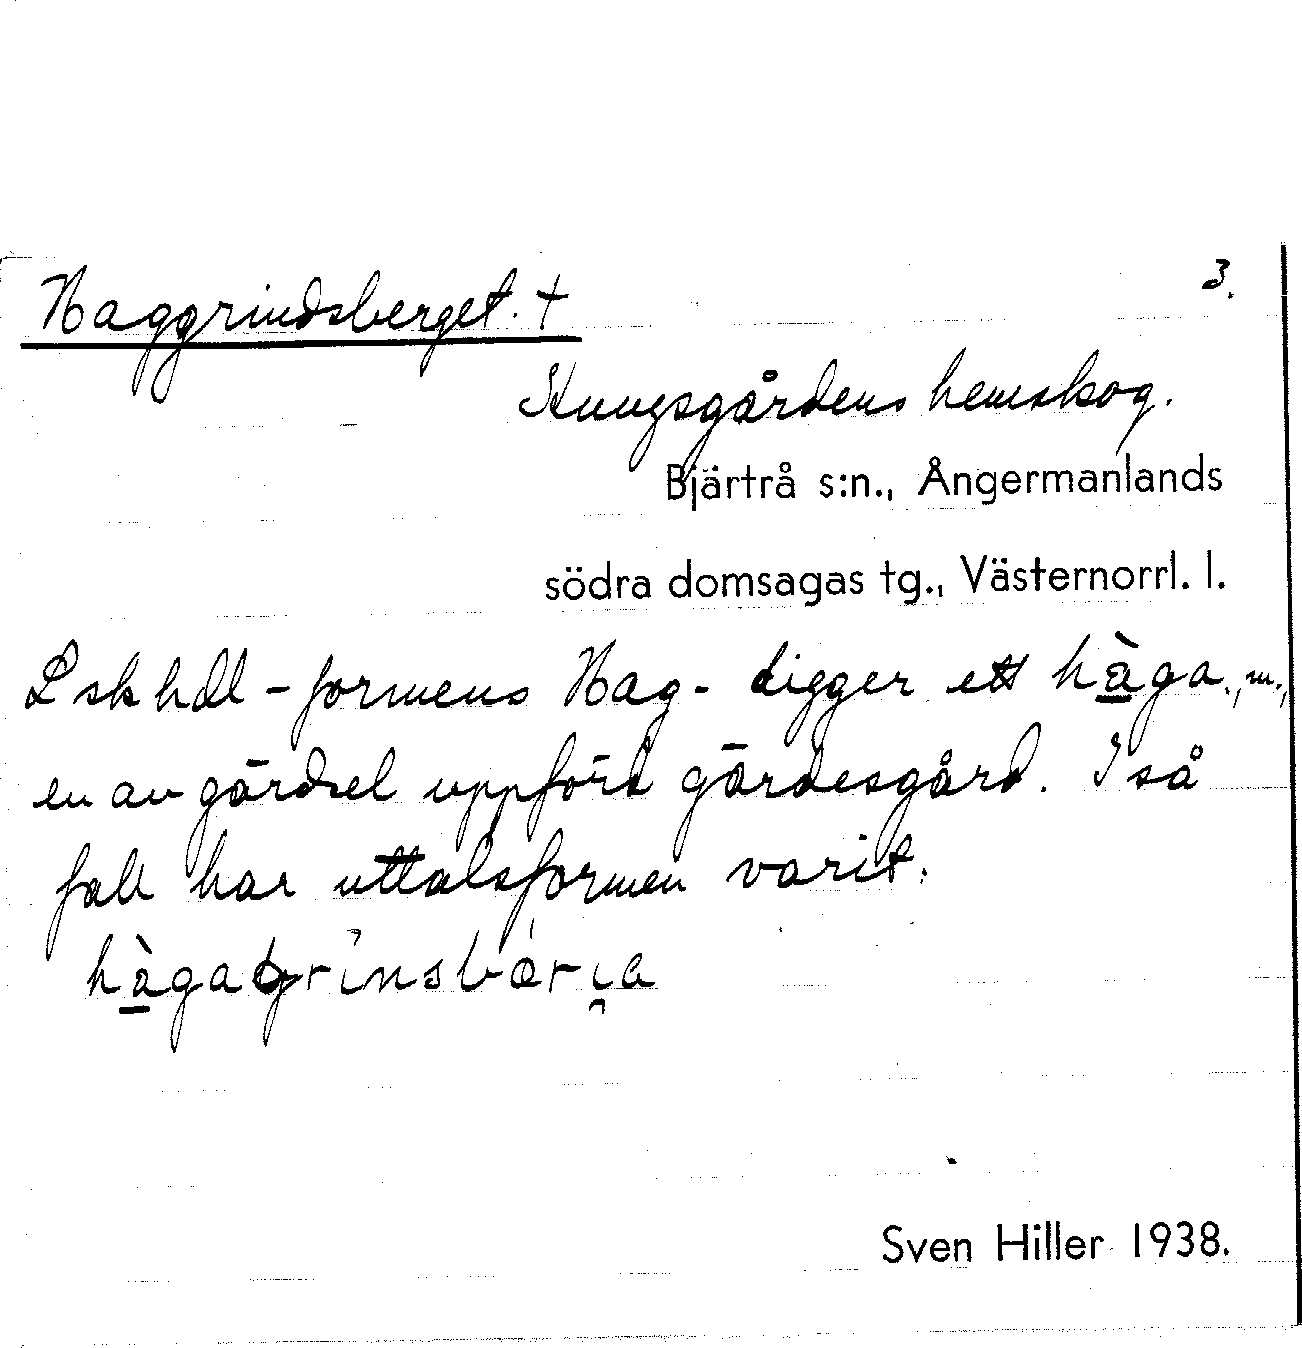 Haggrindsberget. +
3.
Kungsgårdens hemskog.
Bjärtrå s:n., Ångermanlands
södra domsagas tg., Västernorrl. l.
L sk hdl-formens Hag- ligger ett hàga., m.,
en av gärdsel uppförd gärdesgård. I så
fall har uttalsformen varit: